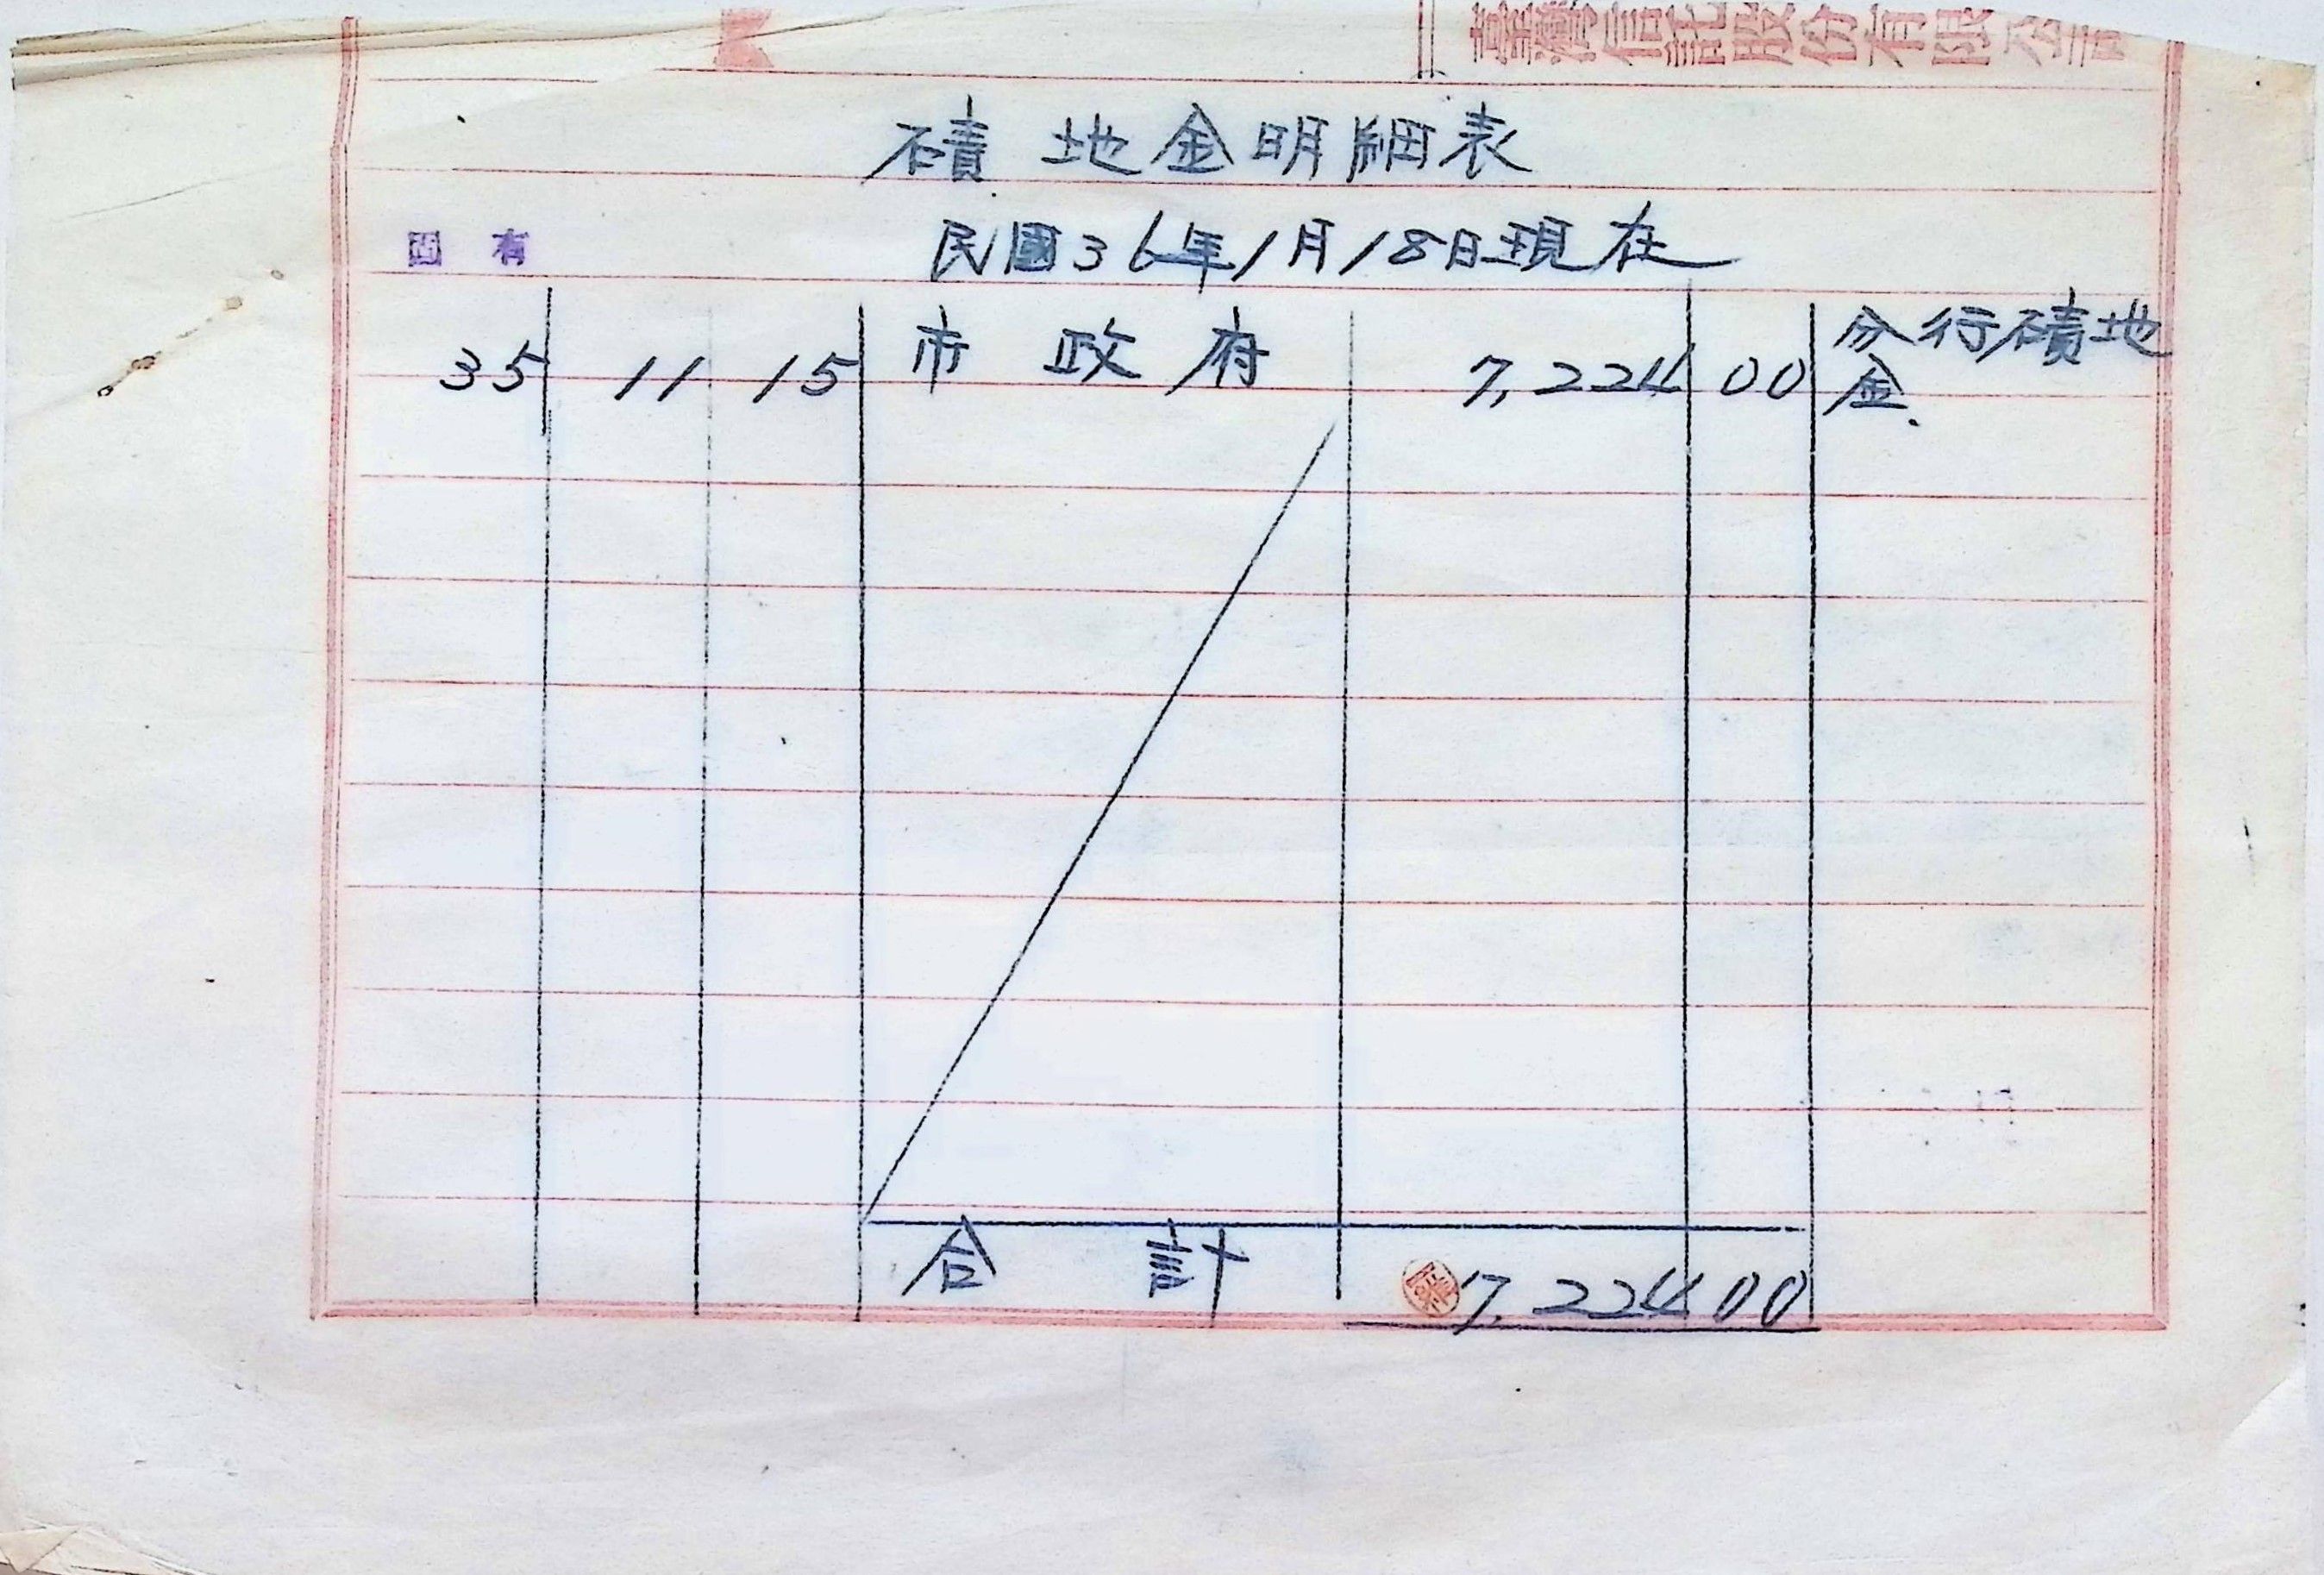 臺灣信託股份有限公司
磧地金明細表
民國36年1月18日現在
固有
35 11 15 市政府 7,224 00 分行磧地
金.
合計 7,224 00